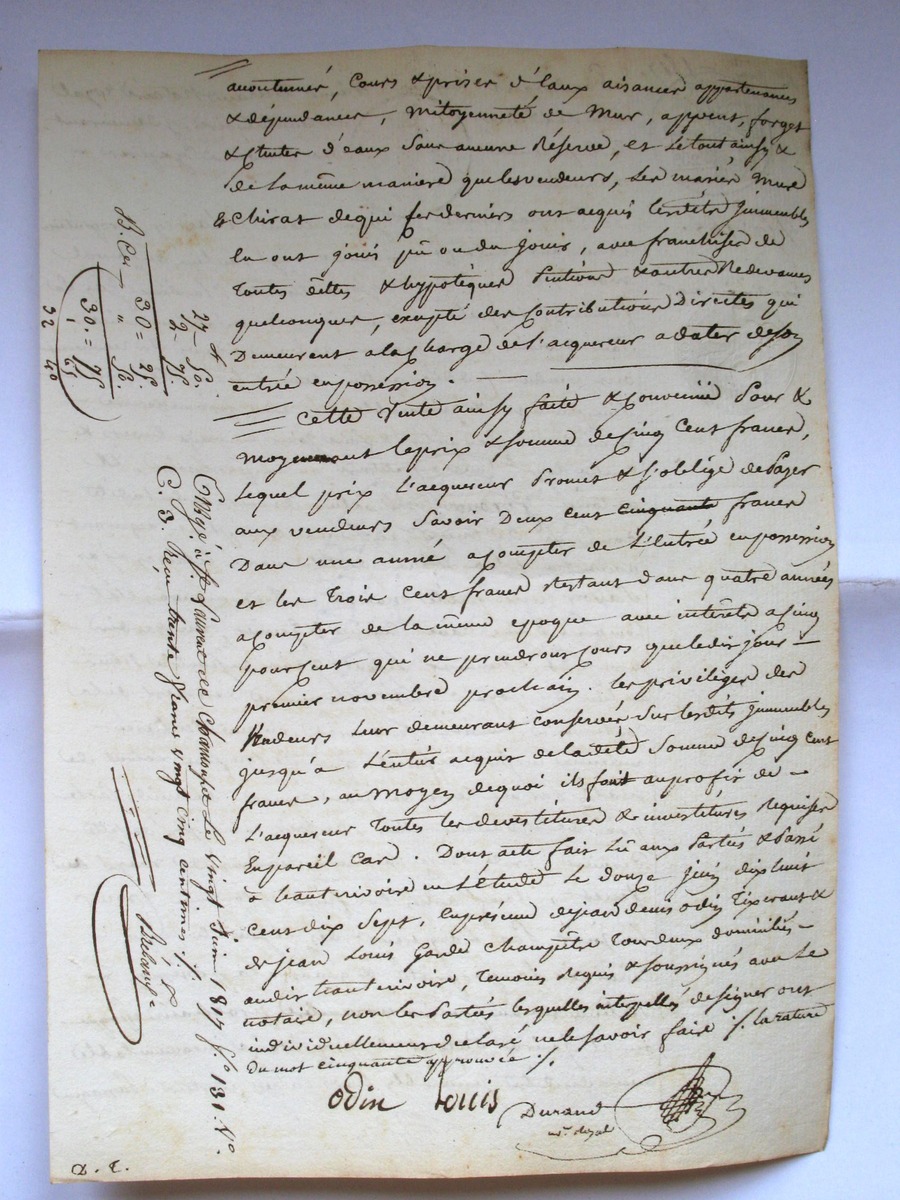 accoutumée, cours & prises d'eaux aisances appartenances
& dépendances, mitoyenneté de Mur, appent, forget
& chutes d'eaux sans aucune Réserve, et le tout ainsy &
de la même maniere que les vendeurs, Les mariés Mure
& Chirat de qui ses derniers ont acquis lesdits Jmmeubles
en ont jouis pû ou du jouir, avec franchises de
Toutes dettes & hypotéques & autres Redevances
quelconques, excepté des Contributions Directes qui
Demeurent à la Charge de l'acquereur a dater de son
entrée en possession.
Cette Vente ainsy faite & convenüe Pour &
moyennant le prix & somme de Cinq Cent francs,
lequel prix L'acquereur Promet & s'oblige de Payer
aux vendeurs Savoir Deux cent cinquante francs
Dans une année a compter de L'entrée en possession
et les Trois Cent francs restant dans quatre années
a compter de la même epoque avec intérêts a Cinq
pour Cent qui ne prendront Cours que le dit jour
premier novembre prochain. les priviléges des
Vendeurs leur demeurant conservés Sur lesdits jmmeubles
jusqu'a L'entier acquit de la dite Somme de Cinq cent
francs, au Moyen de quoi ils font au profit de
L'acquereur Toutes les devestitures & investitures Requises
En pareil Cas. Dont acte fait Lû aux Parties & Passé
à hauterivoire en L'étude Le douze juin dix huit
Cent dix Sept, En présence de jean denis odin Tixerant &
de jean Louis Garde Champêtre Tous deux domiciliés
audit hauterivoire, Temoins Requis & soussignés avec Le
notaire, non les Parties lesquelles interpellés de signer ont
individuellement déclaré ne le savoir faire ./. la rature
Du mot cinquante approuvée ./.
odin Louis
Durand
nre. royal
D. T.
27 - 50.
2 - 75.
30 = 25.
B. Cer " 50.
30 = 75
1 65
32 40
Enregé. à St. Laurent de Chamousset Le vingt Juin 1817 fo. 131. Vo.
C. 3. Reçu trente francs vingt cinq centimes ./.